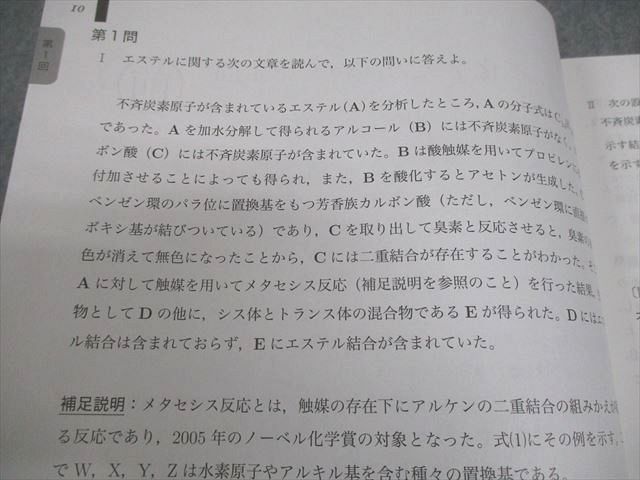 10
第1回
第1問
I エステルに関する次の文章を読んで，以下の問いに答えよ。
不斉炭素原子が含まれているエステル(A)を分析したところ，Aの分子式はC
であった。Aを加水分解して得られるアルコール（B）には不斉炭素原子がなく，
ボン酸（C）には不斉炭素原子が含まれていた。Bは酸触媒を用いてプロピレンに
付加させることによっても得られ，また，Bを酸化するとアセトンが生成した。
ベンゼン環のパラ位に置換基をもつ芳香族カルボン酸（ただし，ベンゼン環に
ボキシ基が結びついている）であり，Cを取り出して臭素と反応させると，臭素の
色が消えて無色になったことから，Cには二重結合が存在することがわかった。
Aに対して触媒を用いてメタセシス反応（補足説明を参照のこと）を行った結果，
物としてDの他に，シス体とトランス体の混合物であるEが得られた。Dには
ル結合は含まれておらず，Eにエステル結合が含まれていた。
補足説明：メタセシス反応とは，触媒の存在下にアルケンの二重結合の組みかえが
る反応であり，2005年のノーベル化学賞の対象となった。式(1)にその例を示す。
でW，X，Y，Zは水素原子やアルキル基を含む種々の置換基である。
II 次の設
不斉炭素
示す結
を示す